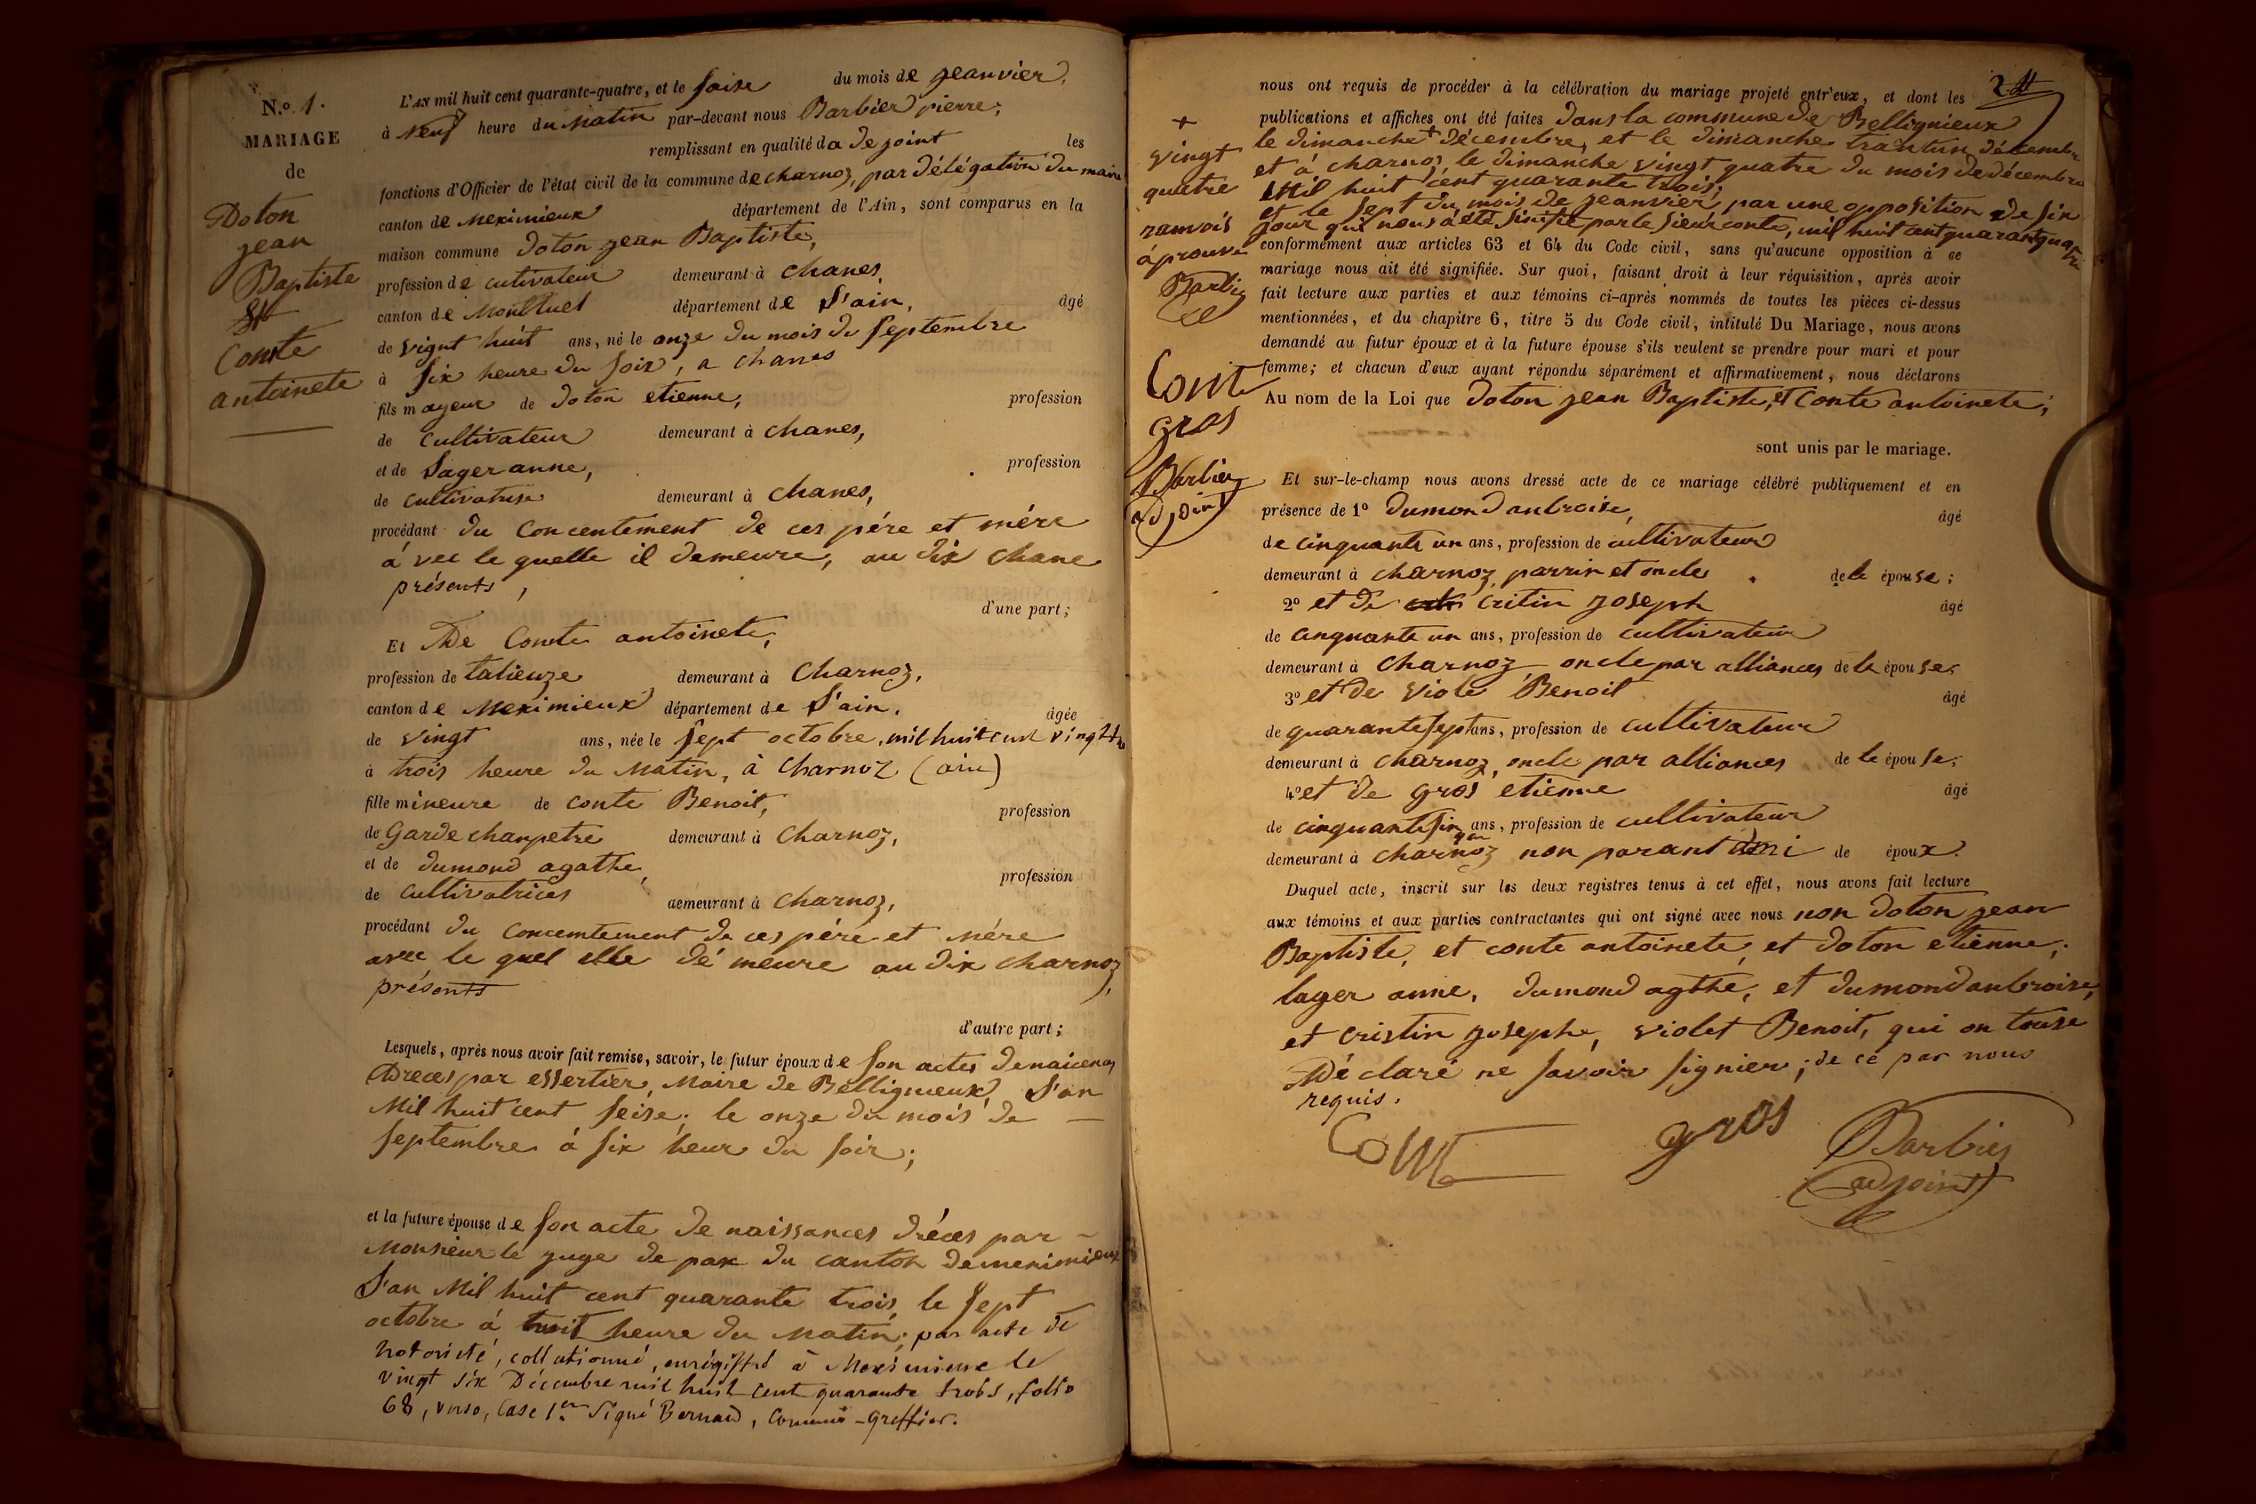 N.o 1.
MARIAGE
de
Doton
jean
Baptiste
Et
Conte
antoinete
L'AN mil huit cent quarante-quatre, et le saise du mois de jeanvier,
à neuf heure du matin par-devant nous Barbier pierre,
remplissant en qualité d a de joint les
fonctions d'Officier de l'état civil de la commune de charnoz, par délégation du maire
canton de meximieux département de l'Ain, sont comparus en la
maison commune doton jean Baptiste,
profession de cutivateur demeurant à chanes,
canton de Montluel département de l'ain, âgé
de vignt huit ans, né le onze du mois du septembre
à six heure du soir, a chanes
fils mayeur de doton etienne, profession
de cultivateur demeurant à chanes,
et de Lager anne, profession
de cultivatrise demeurant à chanes,
procédant du concentement de ces père et mére
à vec le quelle il demeure, au dix chane
présents,
d'une part;
Et De Conte antoinete,
profession de talieuze demeurant à Charnoz,
canton de Meximieux département de l'ain, âgée
de vingt ans, née le sept octobre, mil huit cent vingt tro
à trois heure du matin, à Charnoz (ain)
fille mineure de conte Benoit, profession
de Garde chanpetre demeurant à charnoz,
et de dumond agathe, profession
de cultivatrices demeurant à charnoz,
procédant du concentement de ces pére et mére
avec le quel elle dé meure au dix charnoz,
présents
d'autre part;
Lesquels, après nous avoir fait remise, savoir, le futur époux de son actes denaicences
dreces par essertier, Maire de Belligneux, L'an
Mil huit cent seise, le onze du mois de
septembre à six heur du soir;
et la future épouse de son acte de naissances dréces par
Monsieur le juge de pax du canton demeximieux
L'an Mil huit cent quarante trois, le sept
octobre à huit heure du matin; par acte de
notoriété, collationné, enrégistré à Meximieux le
vingt six Décembre mil huit cent quarante trois, folio
68, verso, Case 1.re Signé Bernard, Commis-Greffier.
2
nous ont requis de procéder à la célébration du mariage projeté entr'eux, et dont les
publications et affiches ont été faites dans la commune de Bellignieux
le dimanche + décembre, et le dimanche trantun décembre
et à charnoz, le dimanche vingt quatre du mois de décembre
Mil huit cent quarante trois,
et le sept du mois de jeanvier, par une opposition de six
jour qui nous a été sinifié par le sieur conte, mil huit cent quarant quatre
conformément aux articles 63 et 64 du Code civil, sans qu'aucune opposition à ce
mariage nous ait été signifiée. Sur quoi, faisant droit à leur réquisition, après avoir
fait lecture aux parties et aux témoins ci-après nommés de toutes les pièces ci-dessus
mentionnées, et du chapitre 6, titre 5 du Code civil, intitulé Du Mariage, nous avons
demandé au futur époux et à la future épouse s'ils veulent se prendre pour mari et pour
femme; et chacun d'eux ayant répondu séparément et affirmativement, nous déclarons
Au nom de la Loi que doton jean Baptiste, et Conte antoinete,
sont unis par le mariage.
+
vingt
quatre
ranvois
aprouvé
Barbier
Conte
gros
Barbier
adjoint
Et sur-le-champ nous avons dressé acte de ce mariage célébré publiquement et en
présence de 1o dumond anbroise, âgé
de cinquante un ans, profession de cultivateur
demeurant à charnoz, parrin et oncle de la épouse;
2o et de critin joseph âgé
de cinquante un ans, profession de cultivateur
demeurant à Charnoz oncle par alliances de la épouse;
3o et de viole Benoit âgé
de quarante sept ans, profession de cultivateur
demeurant à charnoz, oncle par alliances de la épouse;
4o et de gros etienne âgé
de cinquante six ans, profession de cultivateur
demeurant à charnoz non parant ami de époux.
Duquel acte, inscrit sur les deux registres tenus à cet effet, nous avons fait lecture
aux témoins et aux parties contractantes qui ont signé avec nous non doton jean
Baptiste, et conte antoinete, et doton etienne,
lager anne, dumond agthe, et dumond anbroise,
et cristin joseph, violet Benoit, qui on touse
Dé claré ne savoir signier; de ce par nous
requis.
Conte gros Barbier
adjoint